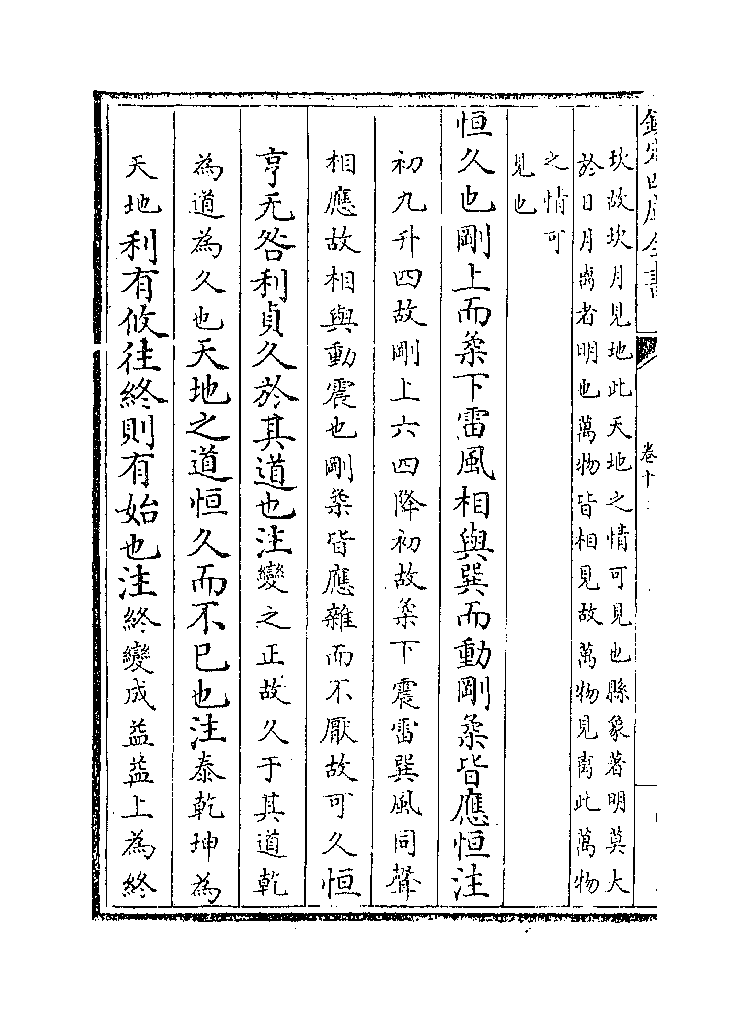 欽定四庫全書
卷十
坎故坎月見地此天地之情可見也縣象著明莫大
於日月离者明也萬物皆相見故萬物見离此萬物
之情可
見也
恒久也剛上而柔下雷風相與巽而動剛柔皆應恒注
初九升四故剛上六四降初故柔下震雷巽風同聲
相應故相與動震也剛柔皆應雜而不厭故可久恒
亨无咎利貞久於其道也注變之正故久于其道乾
為道為久也天地之道恒久而不已也注泰乾坤為
天地利有攸往終則有始也注終變成益益上為終